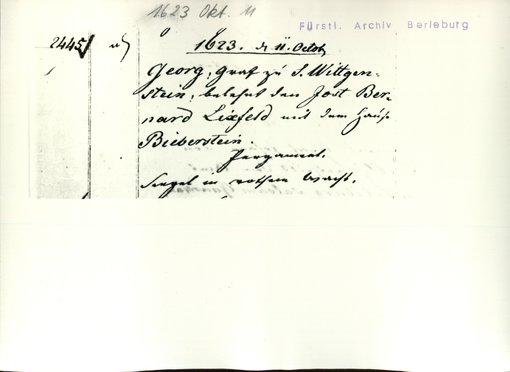 1623 Okt. 11
Fürstl. Archiv Berleburg
2445
1623. d 11. Octob
Georg, Graf zu S. Wittgen-
stein, belehnt den Jost Ber-
nard Lixfeld mit dem Hause
Bieberstein.
Pergament.
Siegel in rothem Wachs.